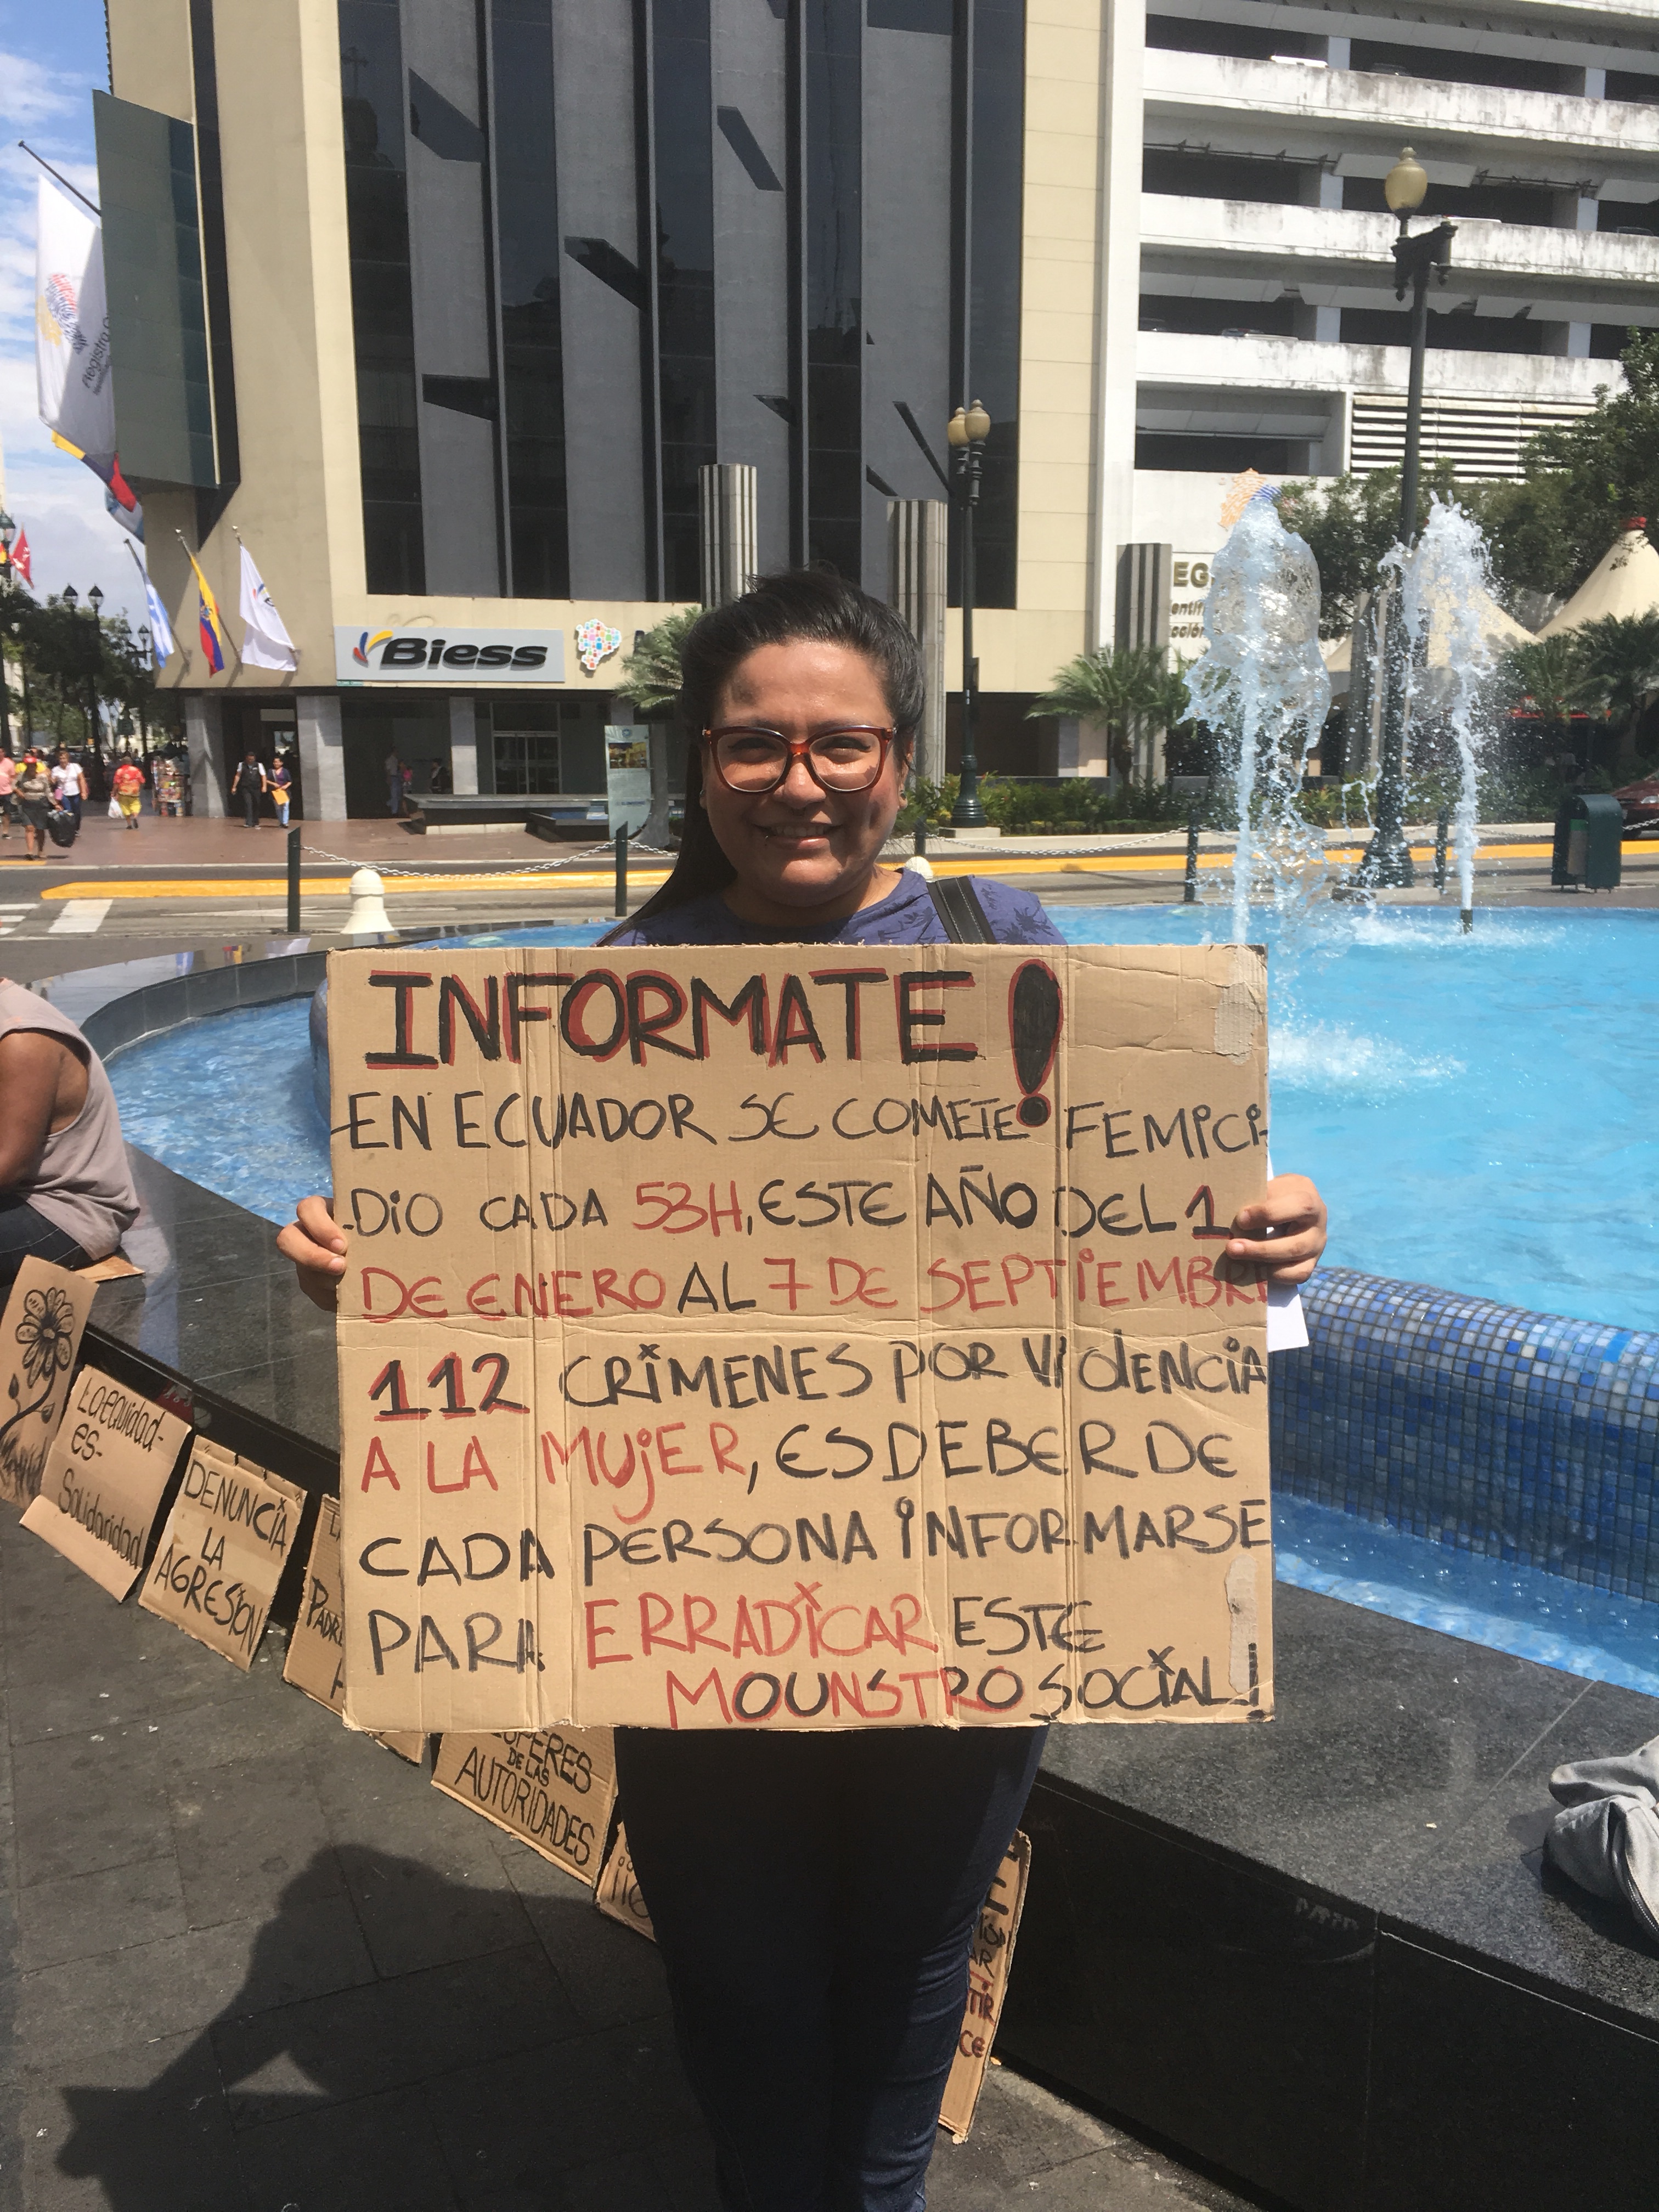 Registro
Biess
EG
INFORMATE!
EN ECUADOR SE COMETE FEMICI-
DIO CADA 53H, ESTE AÑO DEL 1
DE ENERO AL 7 DE SEPTIEMBRE
112 CRIMENES POR VIOLENCIA
A LA MUJER, ES DEBER DE
CADA PERSONA INFORMARSE
PARA ERRADICAR ESTE
MOUNSTRO SOCIAL!
La equidad
es-
Solidaridad
DENUNCIA
LA
AGRESIÓN
DE LAS
AUTORIDADES